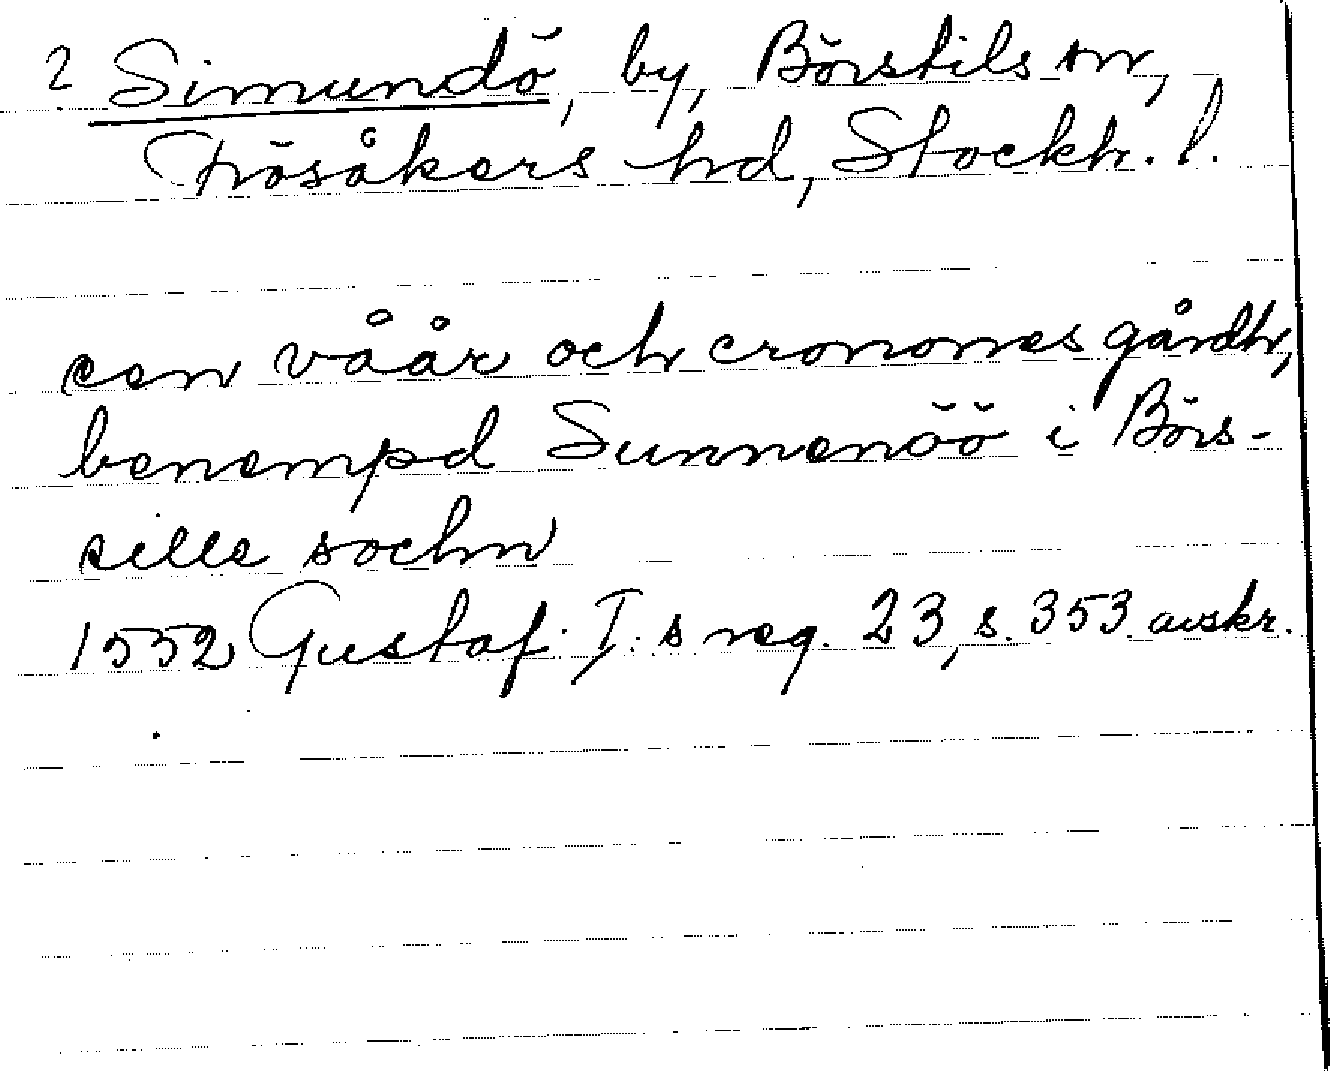 2 Simundö, by, Börstils sn,
Frösåkers hd, Stockh. l.
een våår och cronones gårdh,
benempd Sunnenöö i Börs-
sille sochn
1552 Gustaf I:s reg. 23, s. 353 avskr.